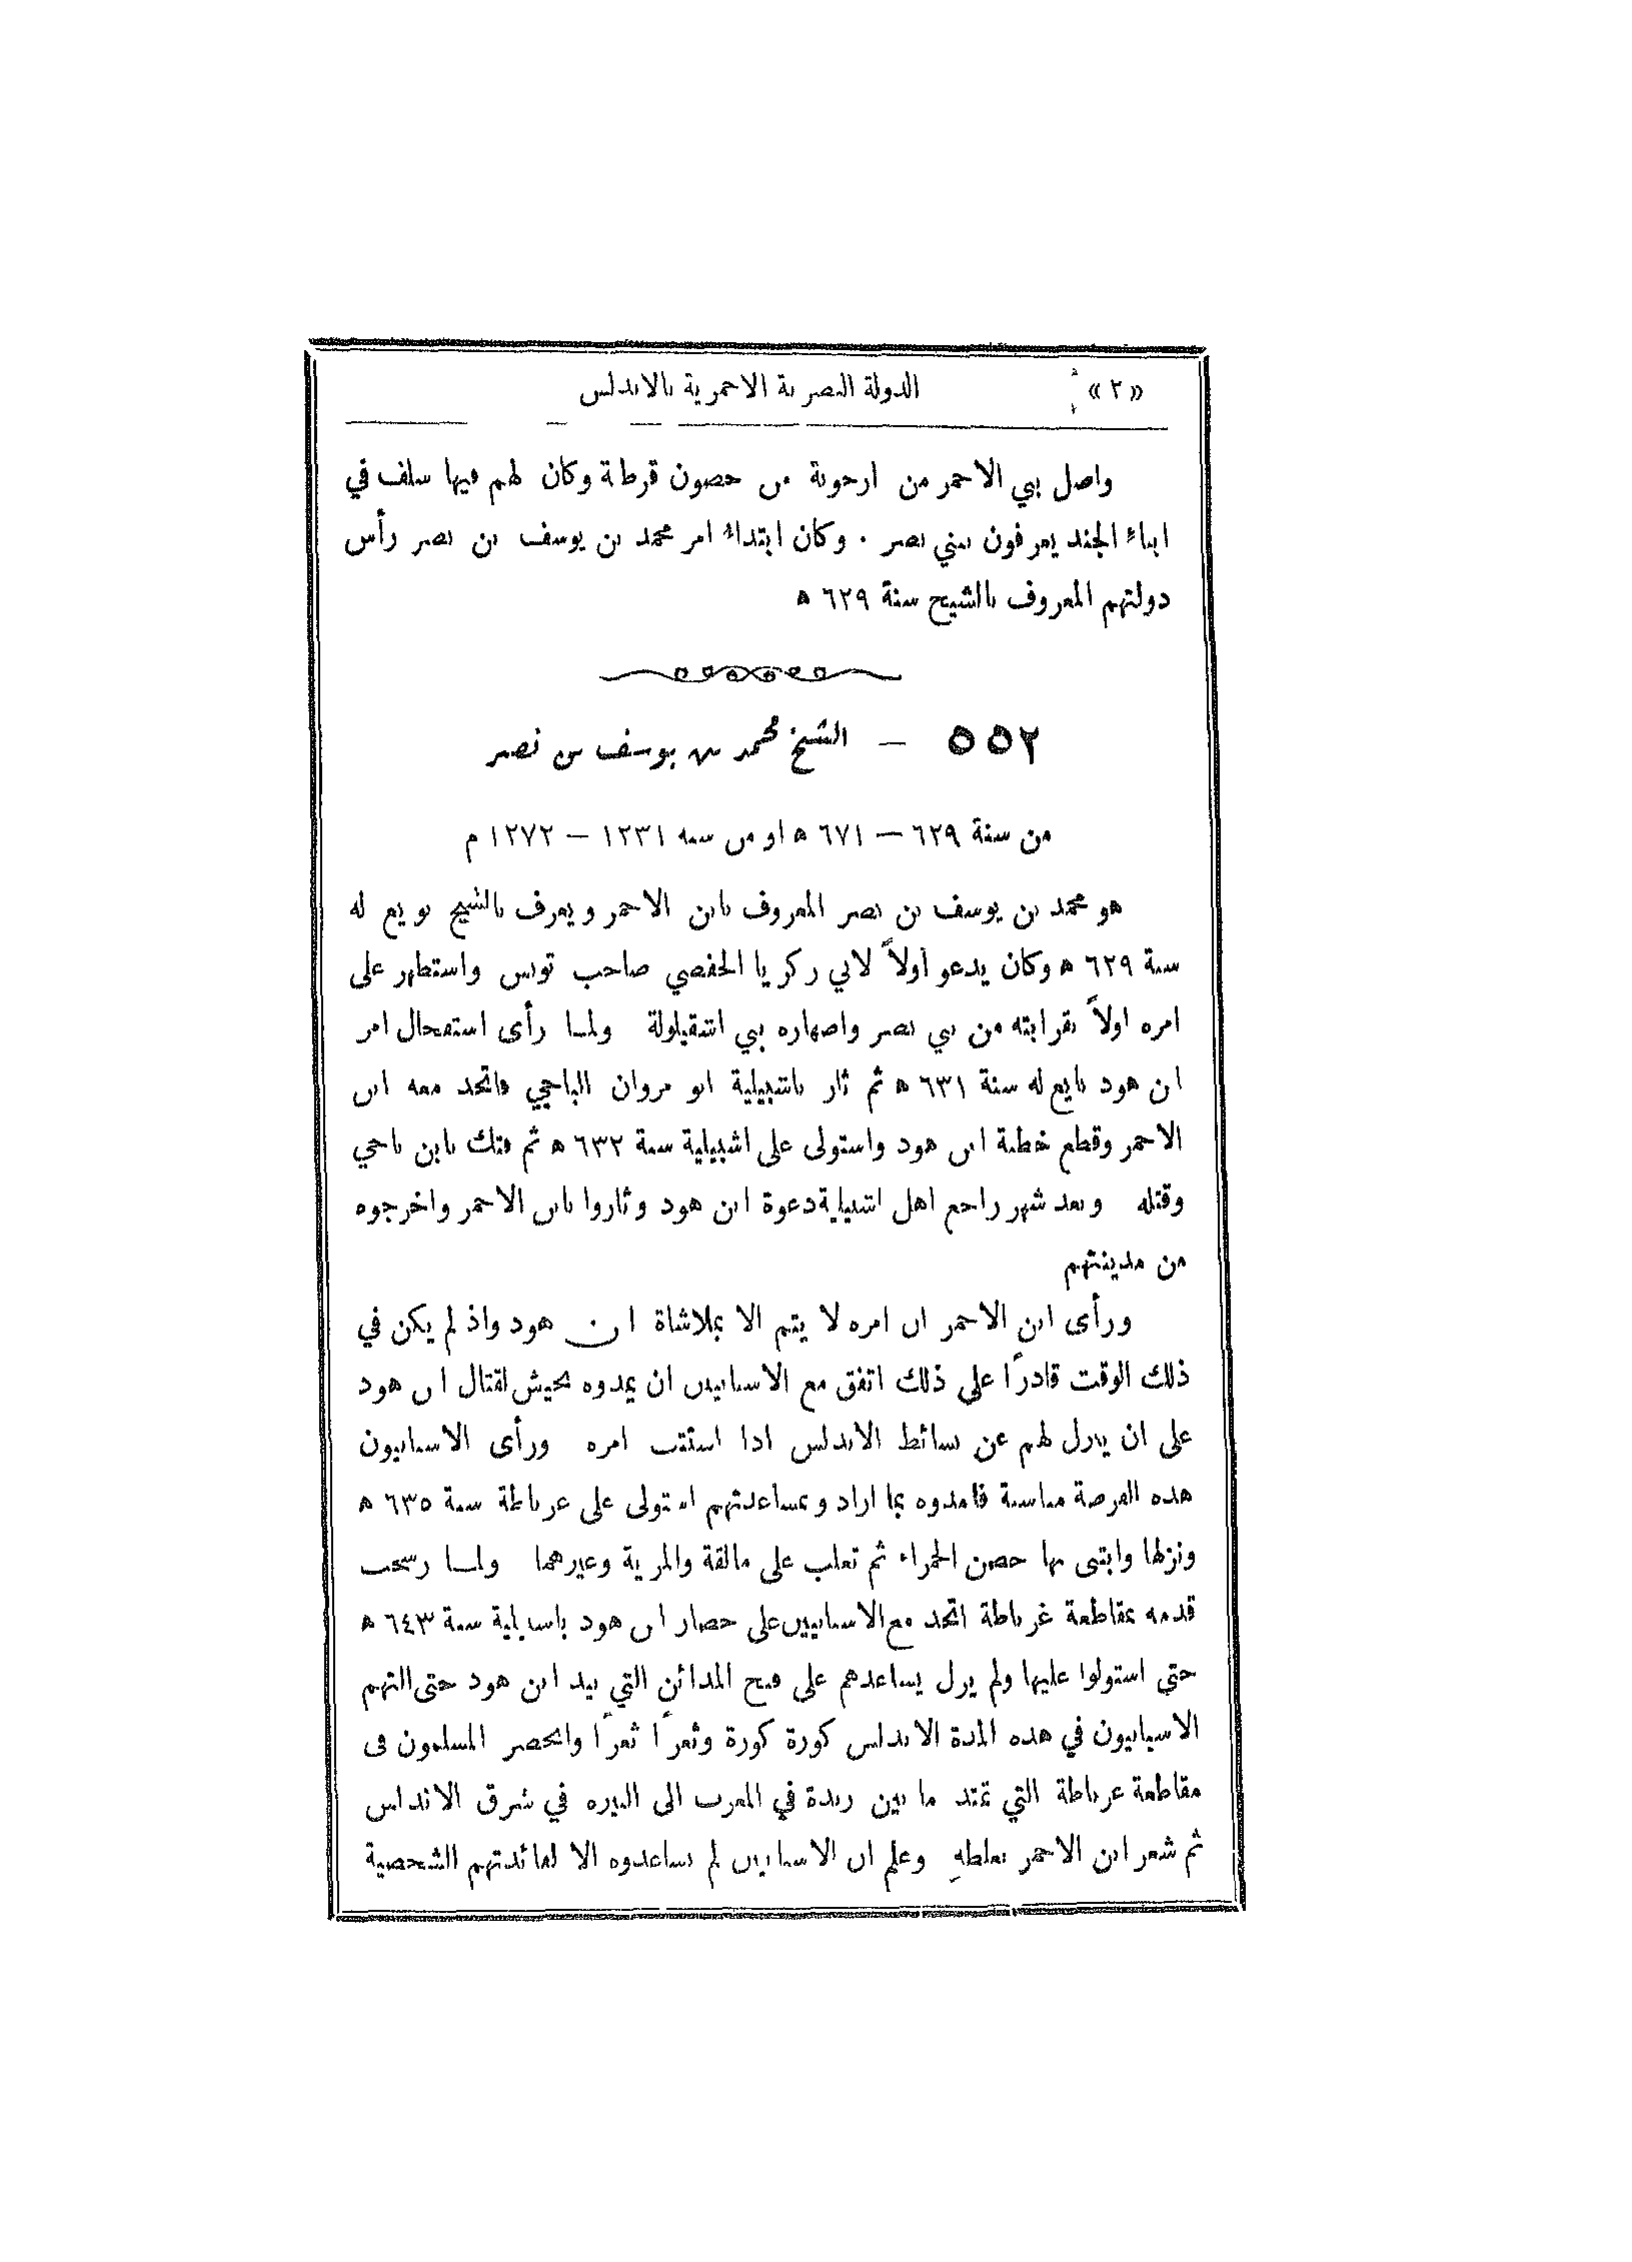 «٢» الدولة النصرية الاحمرية بالاندلس
واصل بني الاحمر من ارجونة من حصون قرطبة وكان لهم فيها سلف في
ابناء الجند يعرفون ببني نصر . وكان ابتداء امر محمد بن يوسف بن نصر رأس
دولتهم المعروف بالشيخ سنة ٦٢٩ ه
٥٥٢ – الشيخ محمد بن يوسف بن نصر
من سنة ٦٢٩ – ٦٧١ ه او من سنة ١٢٣١ – ١٢٧٢ م
هو محمد بن يوسف بن نصر المعروف بابن الاحمر ويعرف بالشيخ بويع له
سنة ٦٢٩ ه وكان يدعو اولاً لابي زكريا الحفصي صاحب تونس واستظهر على
امره اولاً بقرابته من بني نصر واصهاره بني اشقيلولة ولما رأى استفحال امر
ابن هود بايع له سنة ٦٣١ ه ثم ثار باشبيلية ابو مروان الباجي فاتحد معه ابن
الاحمر وقطع خطبة ابن هود واستولى على اشبيلية سنة ٦٣٢ ه ثم فتك بابن باجي
وقتله وبعد شهر راجع اهل اشبيلية دعوة ابن هود وثاروا بابن الاحمر واخرجوه
من مدينتهم
ورأى ابن الاحمر ان امره لا يتم الا بملاشاة ابن هود واذ لم يكن في
ذلك الوقت قادرًا على ذلك اتفق مع الاسبانيين ان يمدوه بجيش لقتال ابن هود
على ان ينزل لهم عن بسائط الاندلس اذا استتب امره ورأى الاسبانيون
هذه الفرصة مناسبة فامدوه بما اراد وبمساعدتهم استولى على غرناطة سنة ٦٣٥ ه
ونزلها وابتنى بها حصن الحمراء ثم تغلب على مالقة والمرية وغيرهما ولما رسخت
قدمه بمقاطعة غرناطة اتحد مع الاسبانيين على حصار ابن هود باشبيلية سنة ٦٤٣ ه
حتى استولوا عليها ولم يزل يساعدهم على فتح المدائن التي بيد ابن هود حتى التهم
الاسبانيون في هذه المدة الاندلس كورة كورة وثغرًا ثغرًا وانحصر المسلمون في
مقاطعة غرناطة التي تمتد ما بين رندة في المغرب الى البيره في شرق الاندلس
ثم شعر ابن الاحمر بغلطهِ وعلم ان الاسبانيين لم يساعدوه الا لفائدتهم الشخصية